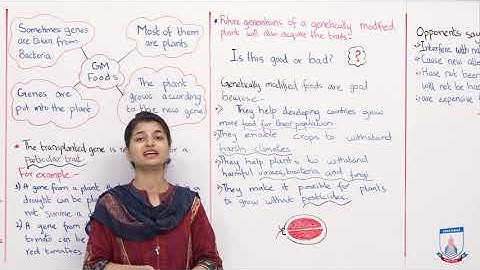 Sometimes genes
are taken from
Bacteria
Most of them
are plants
GM
Foods
Genes are
put into the plant
The plant
grows acording
to the new gene
• The transplanted gene is re a
particular trait.
For example:-
1) A gene from a plant th a
drought can be pl
not survive a
2) A gene from
tomato can be
red tomatoes
• Future generations of a genetically modified
plant will also acquire the traits.
Is this good or bad? ?
Genetically modified foods are good
because:-
They help developing countries grow
more food for their population
They enable crops to withstand
harsh climates.
They help plants to withstand
harmful viruses, bacteria and fungi
They make it possible for plants
to grow without pesticides.
Opponents say
Interfere with na
Cause new alle
Have not been
will not be ha
are expensive